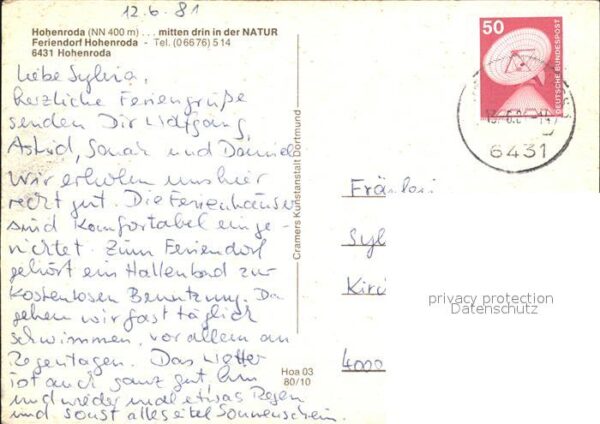 12.6.81
Hohenroda (NN 400 m) . . . mitten drin in der NATUR
Feriendorf Hohenroda - Tel. (0 66 76) 5 14
6431 Hohenroda
Liebe Sylvia,
herzliche Feriengrüße
senden Dir Wolfgang,
Astrid, Sonah und Daniela
Wir erholen uns hier
recht gut. Die Ferienhäuser
sind komfortabel einge-
richtet. Zum Feriendorf
gehört ein Hallenbad zur
kostenlosen Benutzung. Da
gehen wir fast täglich
schwimmen, vor allem an
Regentagen. Das Wetter
ist auch ganz gut, hin
und wieder mal etwas Regen
und sonst alles eitel Sonnenschein.
Cramers Kunstanstalt Dortmund
Hoa 03
80/10
50
DEUTSCHE BUNDESPOST
6431
Fräulei
Syl
Kirc
4000
privacy protection
Datenschutz